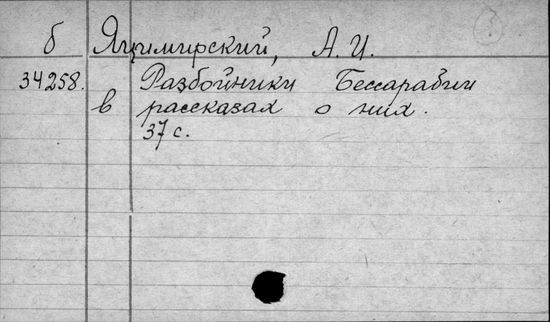 б Яцимирский, А. И.
34258. Разбойники Бессарабии
в рассказах о них.
37 с.